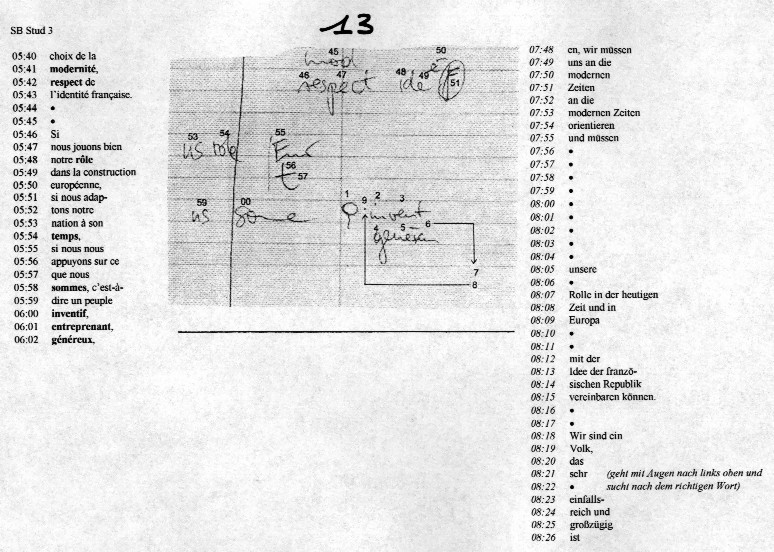 13
SB Stud 3
05:40 choix de la
05:41 modernité,
05:42 respect de
05:43 l'identité française.
05:44 •
05:45 •
05:46 Si
05:47 nous jouons bien
05:48 notre rôle
05:49 dans la construction
05:50 européenne,
05:51 si nous adap-
05:52 tons notre
05:53 nation à son
05:54 temps,
05:55 si nous nous
05:56 appuyons sur ce
05:57 que nous
05:58 sommes, c'est-à-
05:59 dire un peuple
06:00 inventif,
06:01 entreprenant,
06:02 généreux,
45 50
mod
46 47 48 49 51
respect ide é F
53 54 55
us role
56
t 57
59 00 1 9 2 3
us
invent
4 5 6
7
8
07:48 en, wir müssen
07:49 uns an die
07:50 modernen
07:51 Zeiten
07:52 an die
07:53 modernen Zeiten
07:54 orientieren
07:55 und müssen
07:56 •
07:57 •
07:58 •
07:59 •
08:00 •
08:01 •
08:02 •
08:03 •
08:04 •
08:05 unsere
08:06 •
08:07 Rolle in der heutigen
08:08 Zeit und in
08:09 Europa
08:10 •
08:11 •
08:12 mit der
08:13 Idee der franzö-
08:14 sischen Republik
08:15 vereinbaren können.
08:16 •
08:17 •
08:18 Wir sind ein
08:19 Volk,
08:20 das
08:21 sehr (geht mit Augen nach links oben und
08:22 • sucht nach dem richtigen Wort)
08:23 einfalls-
08:24 reich und
08:25 großzügig
08:26 ist